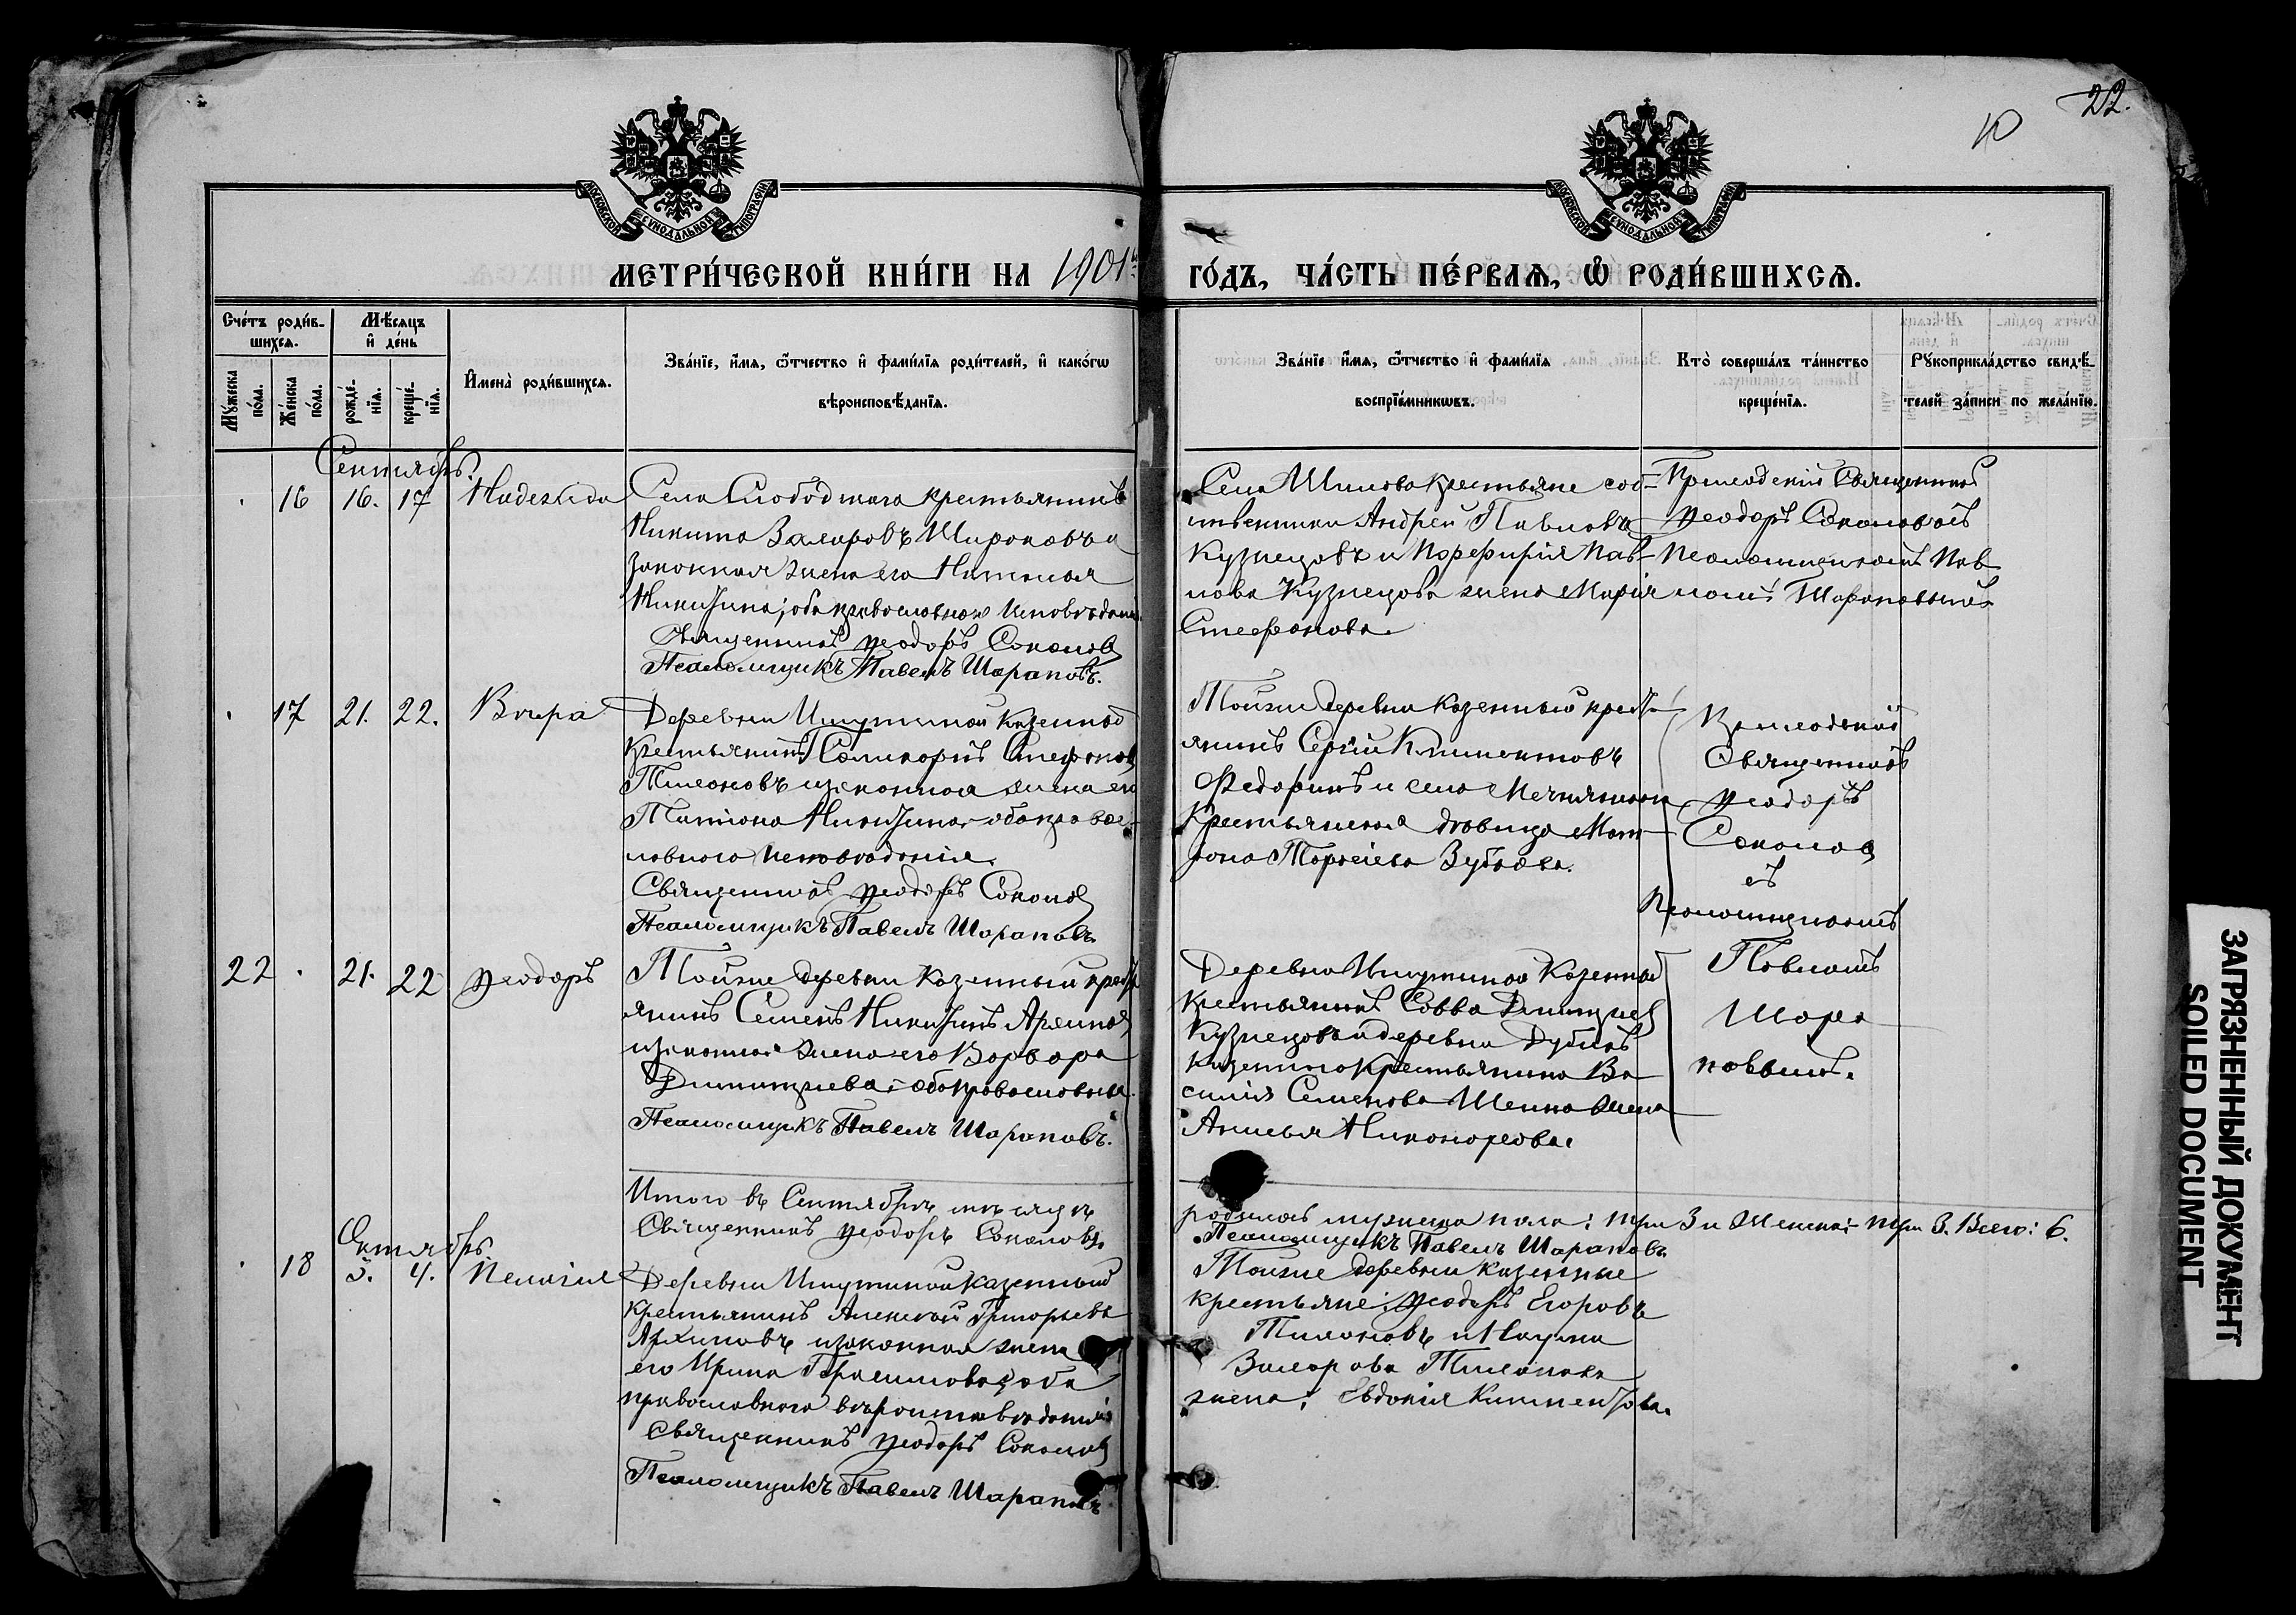 22.
10
МОСКОВСКОЙ СѴНОДАЛЬНОЙ ТИПОГРАФІИ
МОСКОВСКОЙ СѴНОДАЛЬНОЙ ТИПОГРАФІИ
МЕТРИ́ЧЕСКОЙ КНИ́ГИ НА 1901й
ГО́ДЪ, ЧА́СТЬ ПЕ́РВАѦ, Ѽ РОДИ́ВШИХСѦ.
Сче́тъ роди́вшихсѧ.
Мꙋ́жеска по́ла.
Же́нска по́ла.
Мѣ́сѧцъ и҆ де́нь
рожде́нїѧ.
креще́нїѧ.
И҆мена̀ роди́вшихсѧ.
Зва́нїе, и҆́мѧ, ѻ҆́тчество и҆ фами́лїѧ роди́телей, и҆ како́гѡ
вѣроисповѣ́данїѧ.
Зва́нїе и҆́мѧ, ѻ҆́тчество и҆ фами́лїѧ
воспрїе́мникѡвъ.
Кто̀ соверша́лъ та́инство
креще́нїѧ.
Рꙋкоприкла́дство свидѣ́-
телей за́писи по жела́нїю.
Сентябрь.
16 16. 17 Надежда
Села Слободского крестьянинъ
Никита Захаровъ Широковъ и
законная жена его Наталья
Никитина; оба православнаго исповѣданія.
Священникъ Ѳеодоръ Соколовъ
Псаломщикъ Павелъ Шараповъ.
Села Шилова крестьяне соб-
ственники Андрей Павловъ
Кузнецовъ и Порфирія Пав-
лова Кузнецова жена Марія
Стефанова.
Приходскій Священникъ
Ѳеодоръ Соколовъ съ
Псаломщикомъ Пав-
ломъ Шараповымъ
17 21. 22. Вѣра
Деревни Ишутиной казенный
крестьянинъ Поликарпъ Стефановъ
Тихоновъ и законная жена его
Татіана Никитина оба право
славного исповѣданія.
Священникъ Ѳеодоръ Соколовъ
Псаломщикъ Павелъ Шараповъ.
Тойже деревни казенный кресть
янинъ Сергій Климентовъ
Федоринъ и села
крестьянская дѣвица Мат
рона Зубкова.
Приходскій
Священникъ
Ѳеодоръ
Соколовъ
съ
Псаломщикомъ
Павломъ
Шара
повымъ.
22 21. 22 Ѳеодоръ
Тойже деревни казенный кресть
янинъ Семенъ Никитинъ
и законная жена его Варвара
Димитріева; оба православные.
Псаломщикъ Павелъ Шараповъ.
Деревни Ишутиной казенный
крестьянинъ Савва Димитріевъ
Кузнецовъ и деревни Дубинъ
казенного крестьянина Ва
силія Семенова жена
Анисья Никонорова.
Итого въ Сентябрѣ мѣсяцѣ
родилось мужеска пола: три 3 и Женска: три 3. Всего: 6.
Священникъ Ѳеодоръ Соколовъ.
Псаломщикъ Павелъ Шараповъ.
Октябрь.
18 3. 4. Пелагія
Деревни Ишутиной казенный
крестьянинъ Алексѣй Григорьевъ
Архиповъ и законная жена
его Ирина Герасимова; оба
православнаго вѣроисповѣданія
Священникъ Ѳеодоръ Соколовъ
Псаломщикъ Павелъ Шараповъ
Тойже деревни казенные
крестьяне: Ѳеодоръ Егоровъ
Тихоновъ и Наума
Захарова Тихонова
жена: Евдокія Климентова.
ЗАГРЯЗНЕННЫЙ ДОКУМЕНТ
SOILED DOCUMENT